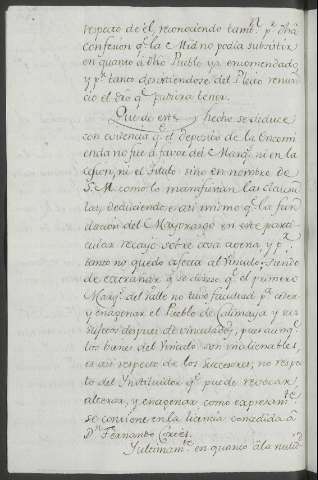 respecto de el reconociendo tambn. pr. dha
confesion qe. la Mid no podia subsistir
en quanto á dho Pueblo ya encomendado
y pr. tanto desistiendose del Pleito renun
cio el dro qe. pudiera tener.
Que de este hecho se deduce
con evidencia qe. el deposito de la Encomi
enda no fue á favor del Marqs. ni en la
ni el Titulo sino en nombre de
S. M. como lo manifiestan las clausu
las, deduciendose asi mismo qe. la fun
dacion del Mayorazgo en este parti
cular recayó sobre cosa agena, y pr.
tanto no quedó afecta al Vinculo: siendo
de extrañar qe. se dixese qe. el primero
Marqs. del Valle no tubo facultad pa. ceder
y enagenar el Pueblo de Calimaya y sus
sujetos despues de vinculados, pues aunqe.
los bienes del Vinculo son inalienables,
es asi respecto de los Succesores; no respec
to del Ynstituidor qe. puede revocar,
alterar, y enagenar como expresamte.
se contiene en la licencia concedida á
Dn. Fernando Cortés.
Yultimamte. en quanto á la nulid